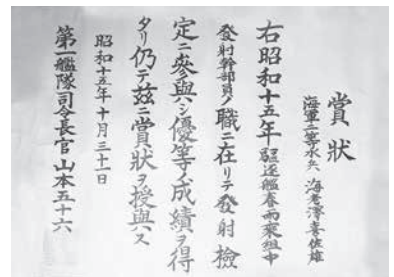 賞狀
海軍二等水兵 海老澤喜佐雄
右昭和十五年驅逐艦春雨乘組中
發射幹部員ノ職ニ在リテ發射檢
定ニ參與シ優等ノ成績ヲ得
タリ仍テ茲ニ賞狀ヲ授與ス
昭和十五年十月三十一日
第一艦隊司令長官 山本五十六